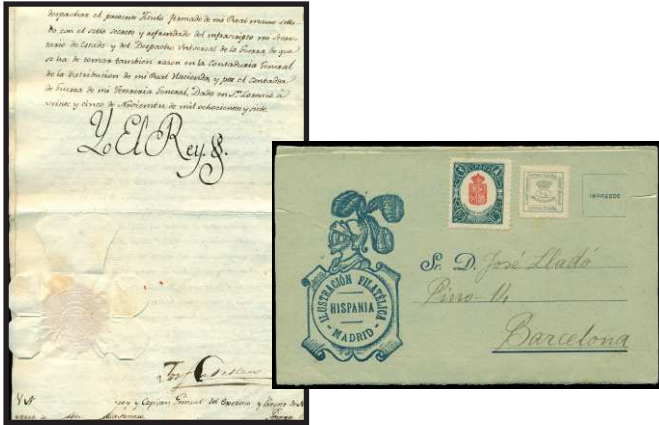 despachar el presente Titulo firmado de mi Real mano sella-
do con el sello secreto y refrendado del infrascripto mi Secre-
tario de Estado y del Despacho Universal de la Guerra de que
se ha de tomar tambien razon en la Contaduria General
de la distribucion de mi Real Hacienda, y por el Contador
de Guerra de mi Tesoreria General. Dado en Sn. Lorenzo à
veinte y cinco de Noviembre de mil ochocientos y siete.
Yo El Rey.
y Capitan General del Exercito y Reyno de
ILUSTRACIÓN FILATÉLICA
HISPANIA
MADRID
IMPRESOS
Sr. D. José Lladó
Pino
Barcelona